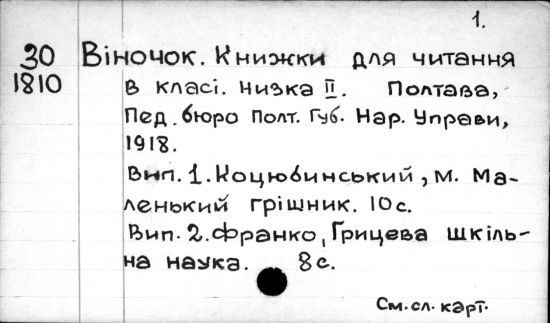 1.
30 Віночок. Книжки для читання
1810 в класі. Низка II. Полтава,
Пед. бюро Полт. Губ. Нар. Управи,
1918.
Вип. 1. Коцюбинський, м. Ма-
ленький грішник. 10 с.
Вип. 2. Франко, Грицева шкіль-
на наука. 8 с.
См. сл. карт.